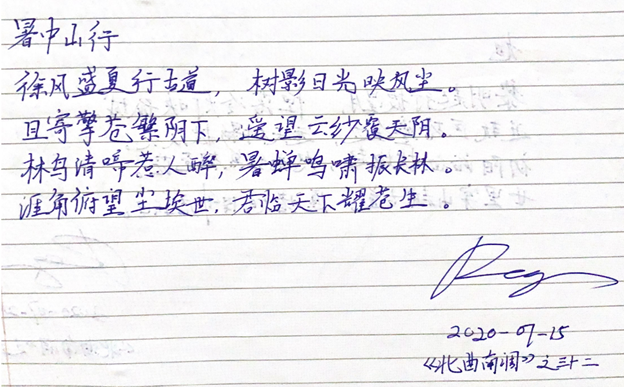 暑中山行
徐风盛夏行古道，树影日光映风尘。
且寄擎苍繁阴下，受望云纱覆天阴。
林鸟清啼惹人醉，暑蝉鸣啸振长林。
涯角俯望尘埃世，君临天下耀苍生。
2020-07-15
《北曲南调》之三十二